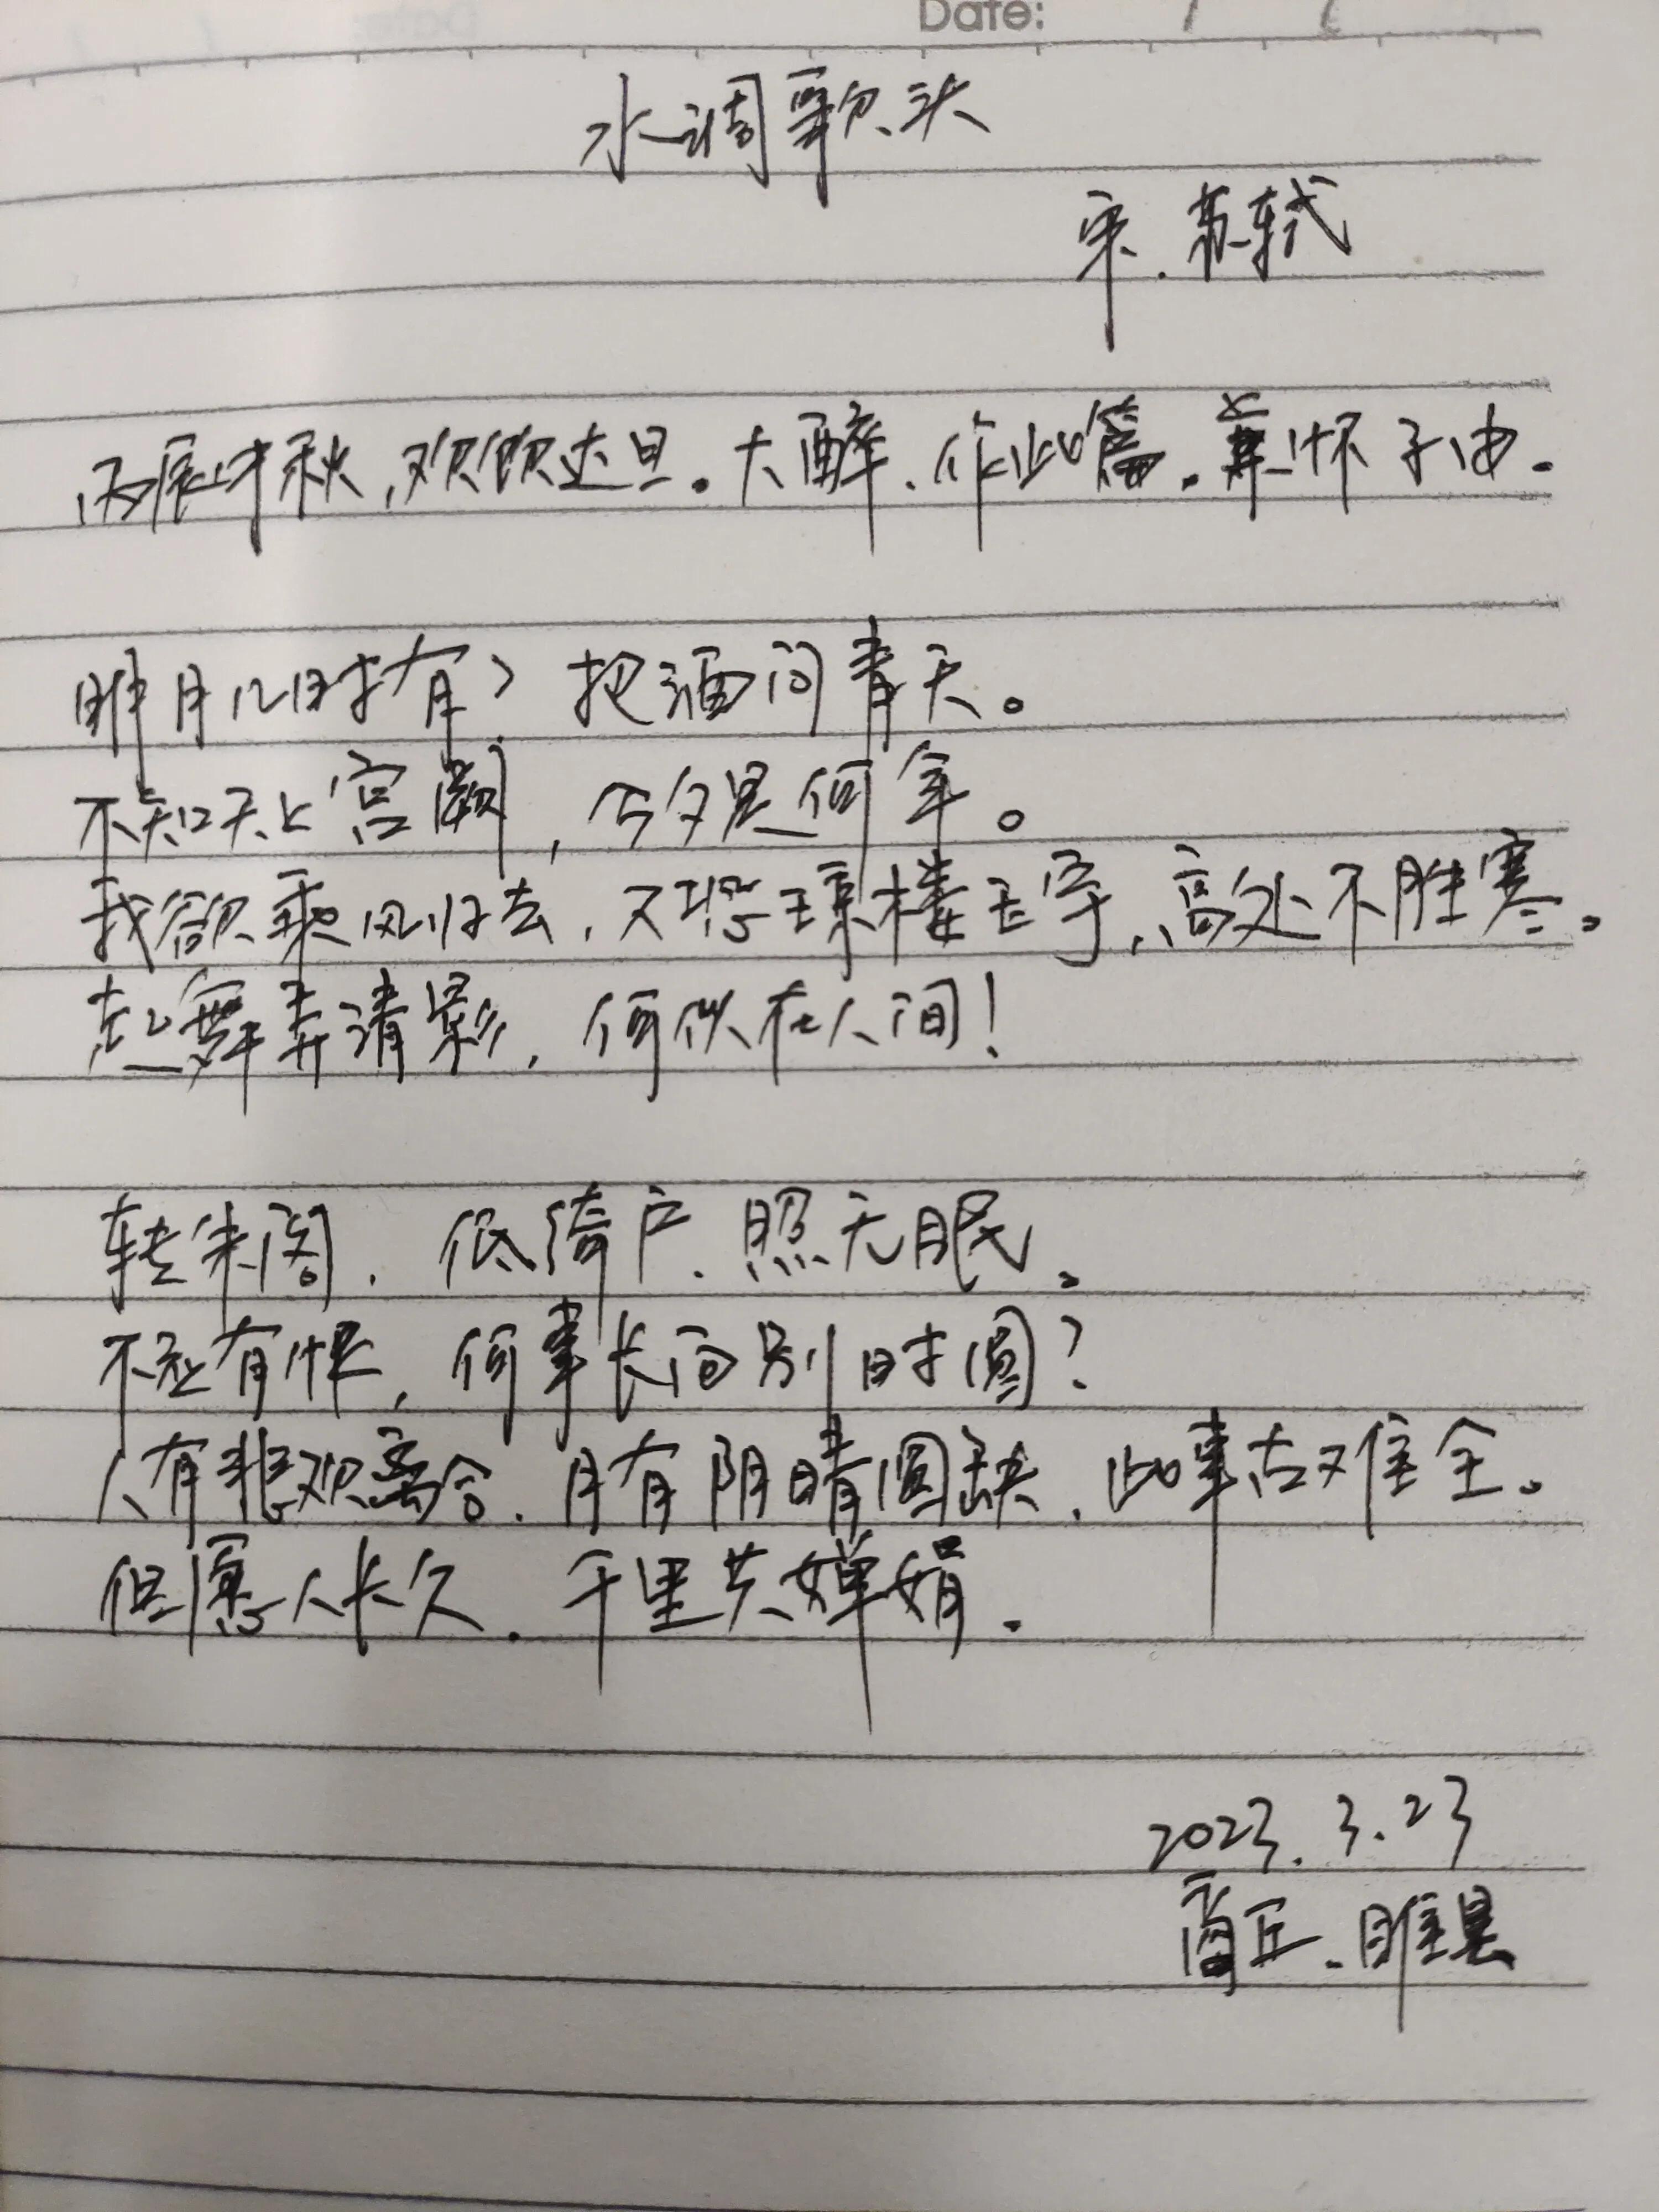 Date:
水调歌头
宋.苏轼
丙辰中秋,欢饮达旦。大醉,作此篇。兼怀子由.
明月几时有?把酒问青天。
不知天上宫阙,今夕是何年。
我欲乘风归去,又恐琼楼玉宇,高处不胜寒。
起舞弄清影,何似在人间!
转朱阁,低绮户,照无眠。
不应有恨,何事长向别时圆?
人有悲欢离合,月有阴晴圆缺,此事古难全。
但愿人长久,千里共婵娟.
2023.3.23